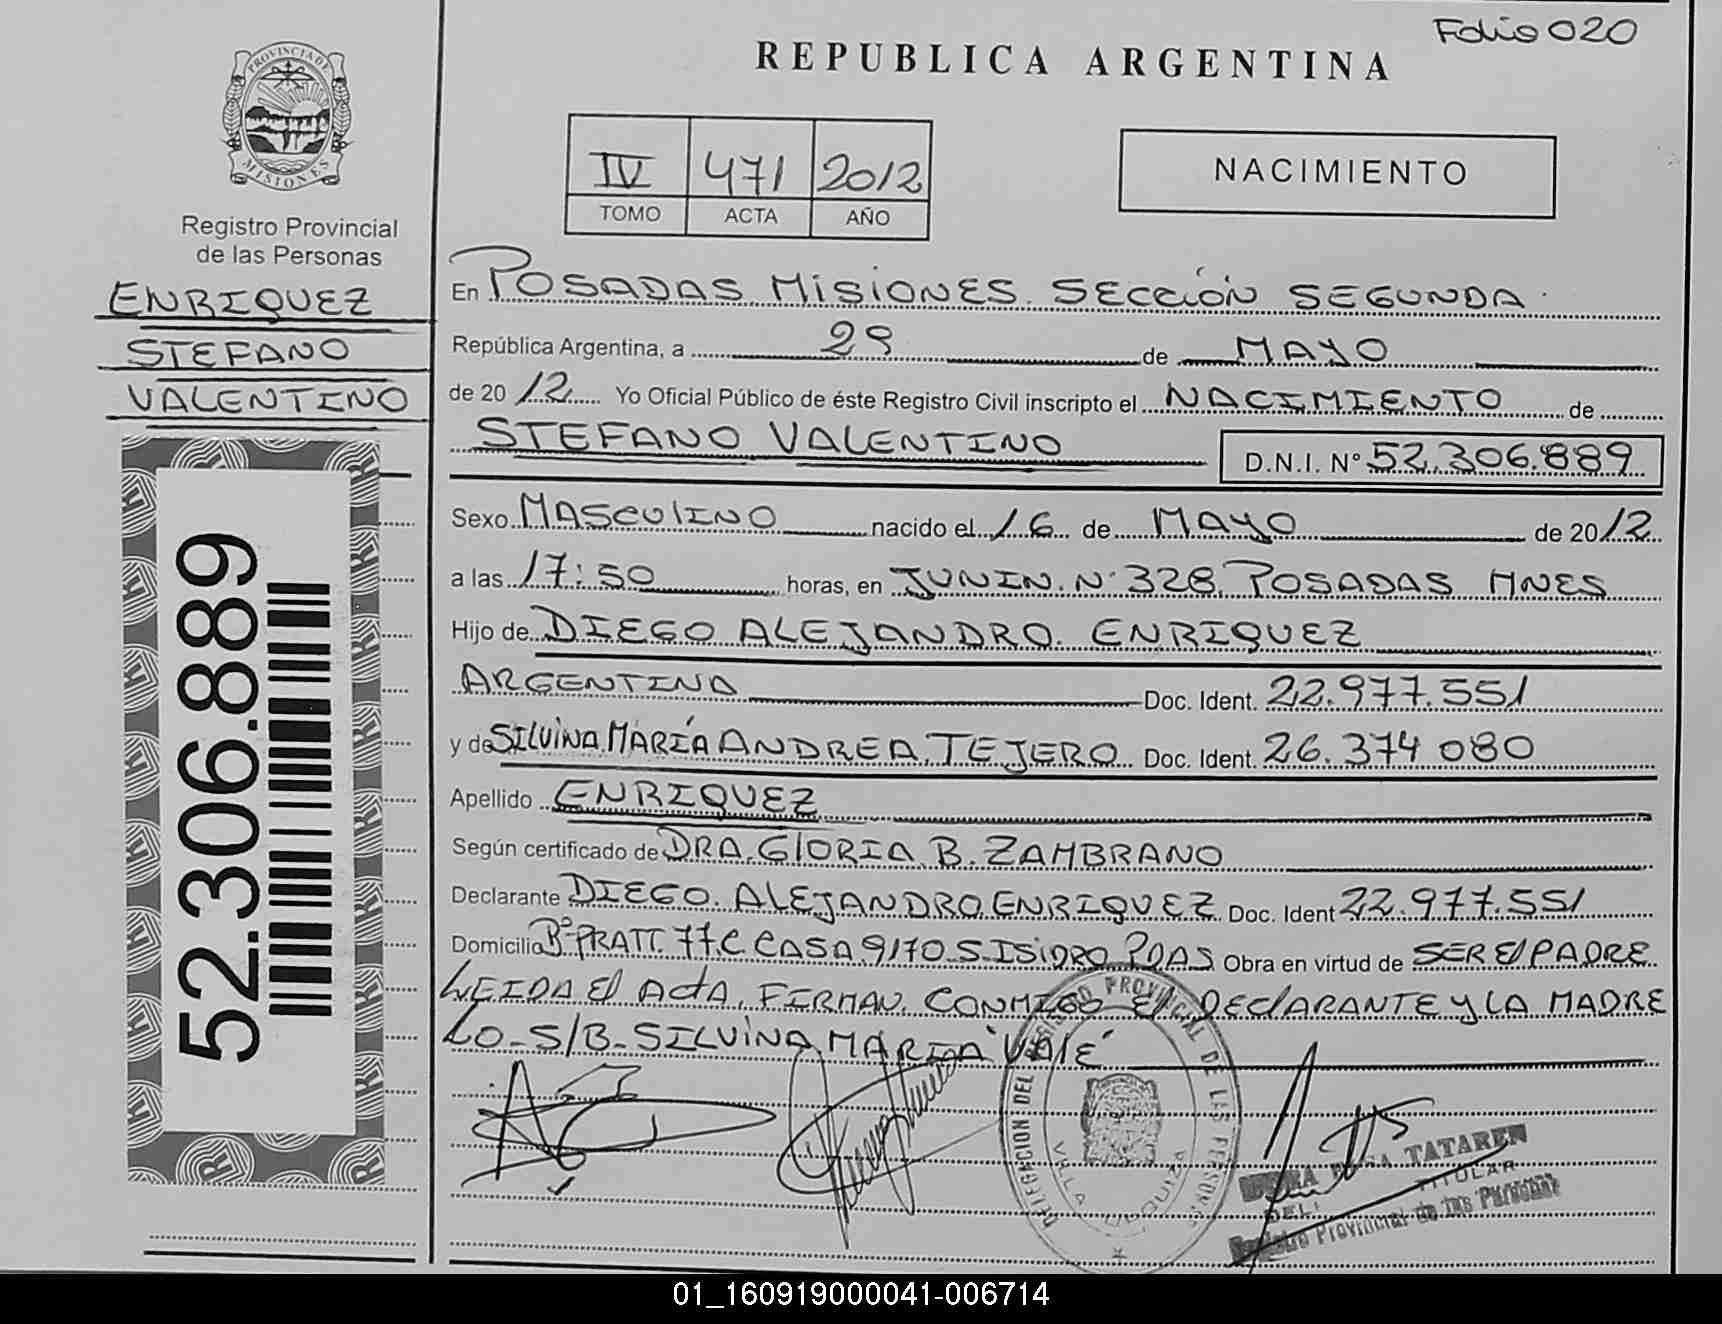 Folio 020
REPUBLICA ARGENTINA
PROVINCIA DE
MISIONES
IV 471 2012
TOMO ACTA AÑO
NACIMIENTO
Registro Provincial
de las Personas
ENRIQUEZ
STEFANO
VALENTINO
52.306.889
En POSADAS MISIONES. SECCIÓN SEGUNDA
República Argentina, a 29 de MAYO
de 2012 Yo Oficial Público de éste Registro Civil inscripto el NACIMIENTO de
STEFANO VALENTINO D.N.I. Nº 52.306.889
Sexo MASCULINO nacido el 16 de MAYO de 2012
a las 17:50 horas, en JUNIN. Nº 328. POSADAS MNES
Hijo de DIEGO ALEJANDRO. ENRIQUEZ
ARGENTINO Doc. Ident. 22.977.551
y de SILVINA MARÍA ANDREA. TEJERO Doc. Ident. 26.374 080
Apellido ENRIQUEZ
Según certificado de DRA. GLORIA B. ZAMBRANO
Declarante DIEGO. ALEJANDRO ENRIQUEZ Doc. Ident 22.977.551
Domicilio Bº PRATT. 77.C. CASA 9170 S. ISIDRO PDAS Obra en virtud de SER El PADRE
LEIDA El ActA, FIRMAN. CONMIGO El DEClARANTE y LA MADRE
LO-S/B- SILVINA MARIA "VAlE"
DELEGACION DEL REGISTRO PROVINCIAL DE LAS PERSONAS
VILLA URQUIZA
TATAREN
TITULAR
Registro Provincial de las Personas
01_160919000041-006714